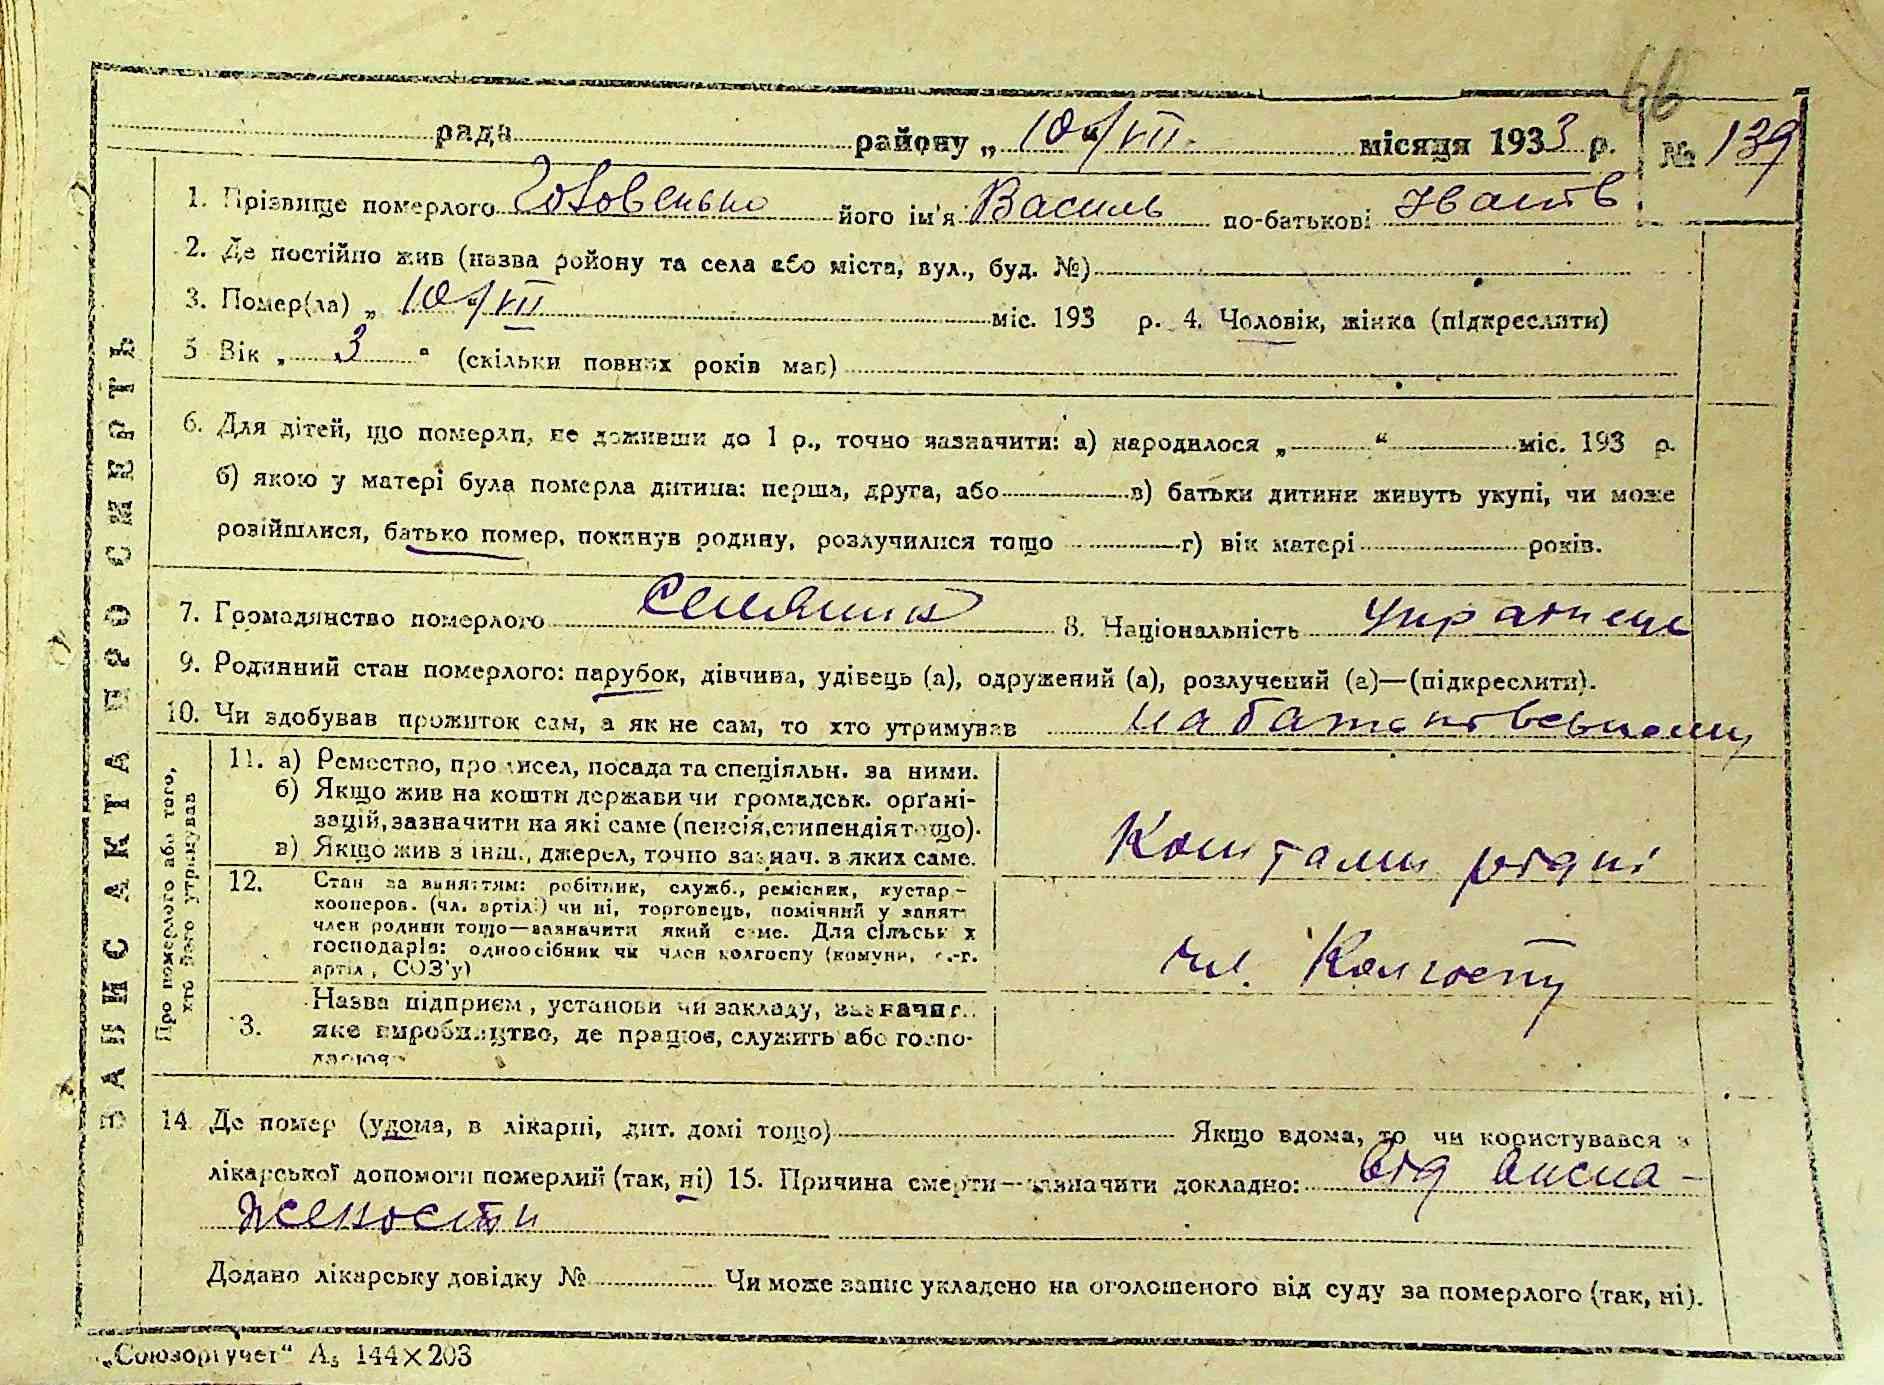 66
рада районy „ 10 “ VII. місяця 1933 р. № 139
1. Прізвище померлого його ім'я Василь по-батькові Іванів.
2. Де постійно жив (назва ройону та села або міста, вул., буд. №)
3. Помер(ла) „ 10 “ VII міс. 193 р. 4. Чоловік, жінка (підкреслити)
5 Вік „ 3 “ (скільки повних років мав)
6. Для дітей, що померли, не доживши до 1 р., точно зазначити: а) народилося „ “ міс. 193 р.
б) якою у матері була померла дитина: перша, друга, або в) батьки дитини живуть укупі, чи може
розійшлися, батько помер, покинув родину, розлучилися тощо г) вік матері років.
7. Громадянство померлого селянин 8. Національність українець
9. Родинний стан померлого: парубок, дівчина, удівець (а), одружений (а), розлучений (а)—(підкреслити).
10. Чи здобував прожиток сам, а як не сам, то хто утримував на батьківському
ЗАПИС АКТА ПРО СМЕРТЬ
Про померлого або того,
хто його утримував
11. а) Ремество, промисел, посада та спеціяльн. за ними.
б) Якщо жив на кошти держави чи громадськ. орґані-
зацій, зазначити на які саме (пенсія, стипендія тощо).
в) Якщо жив з інш., джерел, точно зазнач. з яких саме.
Коштами рідні
12. Стан за заняттям: робітник, служб., ремісник, кустар.-
кооперов. (чл. артілі) чи ні, торговець, помічний у занят.
член родини тощо—зазначити який саме. Для сільськ х
господарів: одноосібник чи член колгоспу (комуни, с.-г.
артіл, СОЗ'у)
чл. Колгоспу
3. Назва підприєм, установи чи закладу, зазначит..
яке виробництво, де працює, служить або госпо-
дарює
14. Де помер (удома, в лікарні, дит. домі тощо) Якщо вдома, то чи користувався з
лікарської допомоги померлий (так, ні) 15. Причина смерти—зазначити докладно: від висна-
жености
Додано лікарську довідку № Чи може запис укладено на оголошеного від суду за померлого (так, ні).
„Союзоргучет“ А₅ 144×203